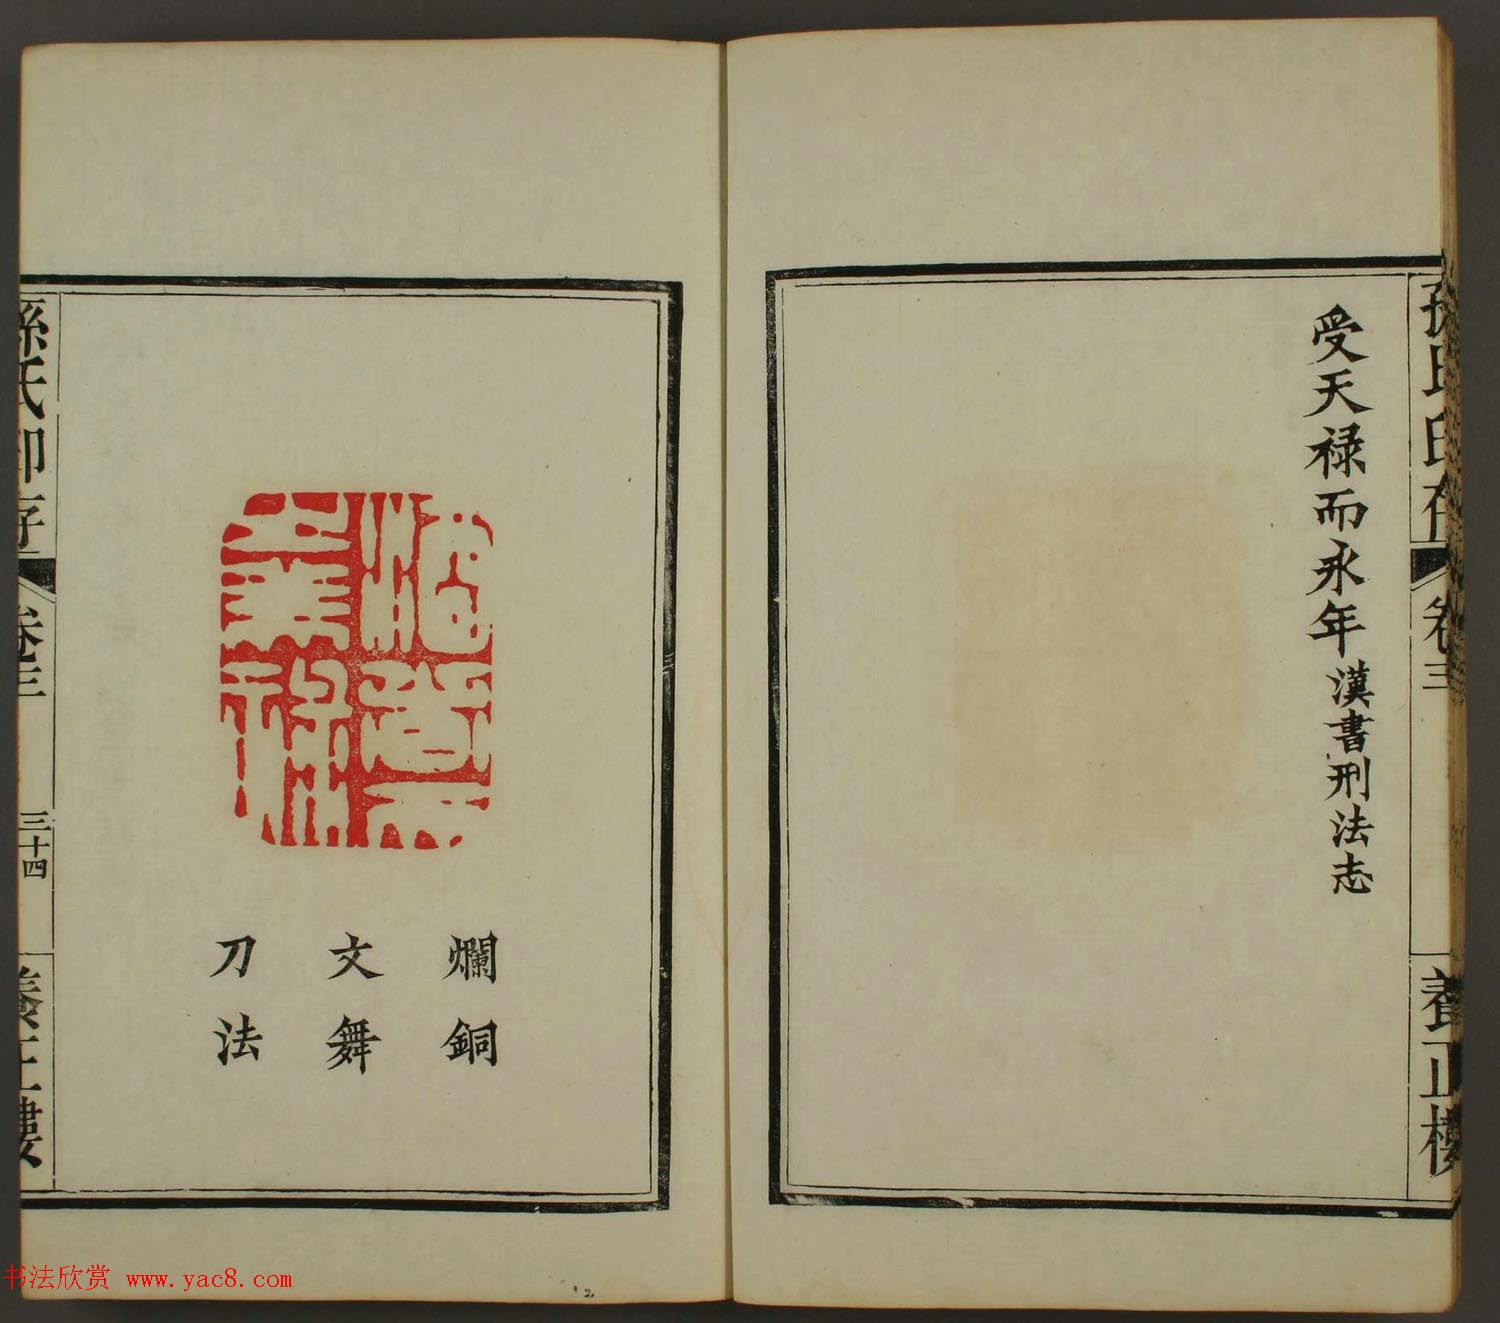 孫氏印存
卷三
養正樓
受天禄而永年 漢書刑法志
爛銅
文舞
刀法
孫氏印存
卷三
三十四
養正樓
书法欣赏 www.yac8.com